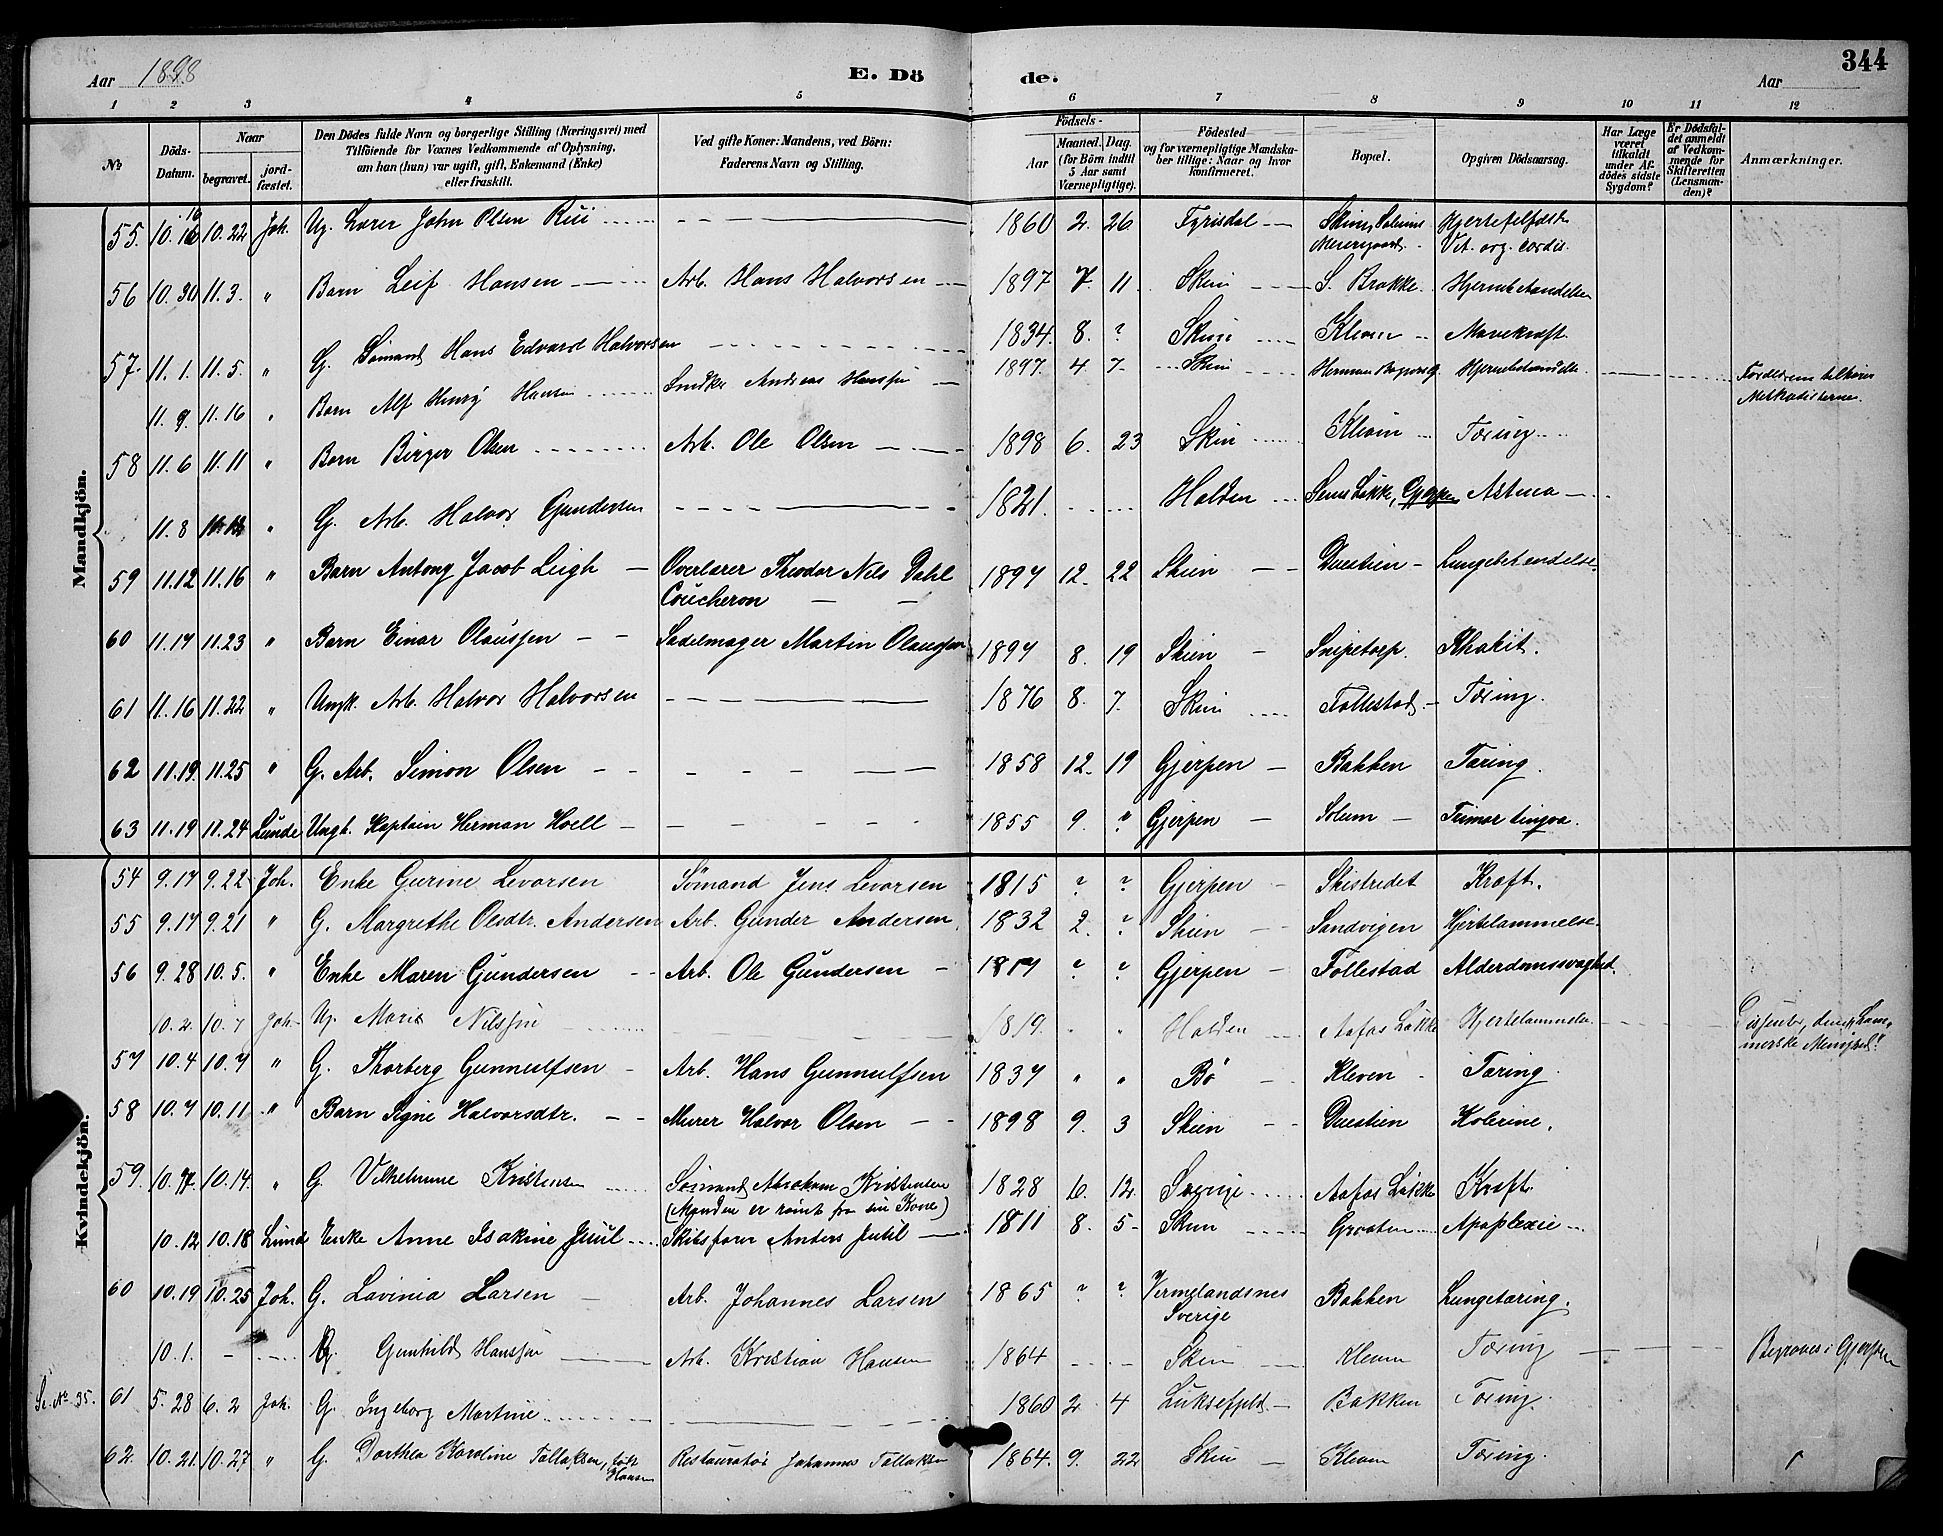 Aar 1898
E. Dö
de.
Aar
344
1 2 3 4 5 6 7 8 9 10 11 12
№
Döds-Datum.
Naar
begravet.
jord-fæstet.
Den Dödes fulde Navn og borgerlige Stilling (Næringsvei) med
Tilföiende for Voxnes Vedkommende af Oplysning,
om han (hun) var ugift, gift, Enkemand (Enke)
eller fraskilt.
Ved gifte Koner: Mandens, ved Börn:
Faderens Navn og Stilling.
Födsels-
Aar
Maaned. Dag.
(for Börn indtil
5 Aar samt
Værnepligtige).
Födested
og for værnepligtige Mandska-
ber tillige: Naar og hvor
konfirmeret.
Bopæl.
Opgiven Dödsaarsag.
Har Læge
været
tilkaldt
under Af-
dödes sidste
Sygdom?
Er Dödsfal-
det anmeldt
af Vedkom-
mende for
Skifteretten
(Lensman-
den)?
Anmærkninger.
Mandkjön.
55. 10.16 10.22 Joh. Ug. Lærer John Olsen Rui 1860 2. 26. Fyrisdal Skien, Solums Hjertefeilfedt
16
Vit. org. cordis.
56 10.30 11.3. " Barn Leif Hansen Arb. Hans Halvorsen 1897 7. 11. Skien S. Brække. Hjernebetændelse
57. 11.1. 11.5. " G. Sömand Hans Edvard Halvorsen 1834. 8. ? Skien Kleven Mavekræft.
11.9. 11.16 " Barn Alf Henry Hansen Snedker Andreas Hanssen 1897. 4 7 Skien Herman Bagersg. Hjernebetændelse Forældrene tilhører
Methodisterne.
58 11.6 11.11 " Barn Birger Olsen Arb. Ole Olsen 1898 6. 23 Skien Kleven Tæring
11.8 " G. Arb. Halvor Gundersen 1821. Holden Løkke, Gjerpen Astma
59 11.12 11.16 " Barn Antony Jacob Leigh Overlærer Theodor Nils Dahl 1897 12. 22 Skien Duestien Lungebetændelse.
Coucheron
60 11.17 11.23 " Barn Einar Olaussen Sadelmager Martin Olaussen 1897 8. 19 Skien Snipetorp. Rhakit.
61 11.16 11.22 " Ungk. Arb. Halvor Halvorsen 1876 8. 7. Skien Follestad Tæring.
62 11.19. 11.25 " G. Arb. Simon Olsen 1858 12. 19 Gjerpen Bakken Tæring.
63 11.19 11.24 Lunde Ungk. Kaptein Herman Hoell 1855 9. ? Gjerpen Solum
Kvindekjön.
54 9.17 9.22 Joh. Enke Gurine Levorsen Sömand Jens Levorsen 1815 ? ? Gjerpen Skistredet Kræft.
55 9.17 9.21 " G. Margrethe Olsdtr. Andersen Arb. Gunder Andersen. 1832 2. ? Skien Sandvigen Hjertelammelse.
56 9.28 10.5. " Enke Maren Gundersen Arb. Ole Gundersen 1817 ? ? Gjerpen Follestad Alderdomssvaghed.
10.2. 10.7 Joh. Ug. Maria Nilssen 1819. " " Holden Aafos Løkke Hjertelammelse Dissenter, den "Lam-
merske Menighed".
57 10.4 10.7 " G. Thorberg Gunnulfsen Arb. Hans Gunnulfsen 1837 " " Bö Kleven Tæring.
58 10.7 10.11 " Barn Signe Halvorsdtr. Murer Halvor Olsen 1898 9. 3 Skien Duestien Kolerine.
59. 10.14. " G Vilhelmine Kristensen Sömand Abraham Kristensen 1828 6. 12. Sverige Aafos Løkke Kræft
(Manden er römt fra sin Kone)
10.12 10.18 Lunde Enke Anne Isakine Juul Skibsfører Anders Juul 1811 8. 5 Skien Graaten Apoplexie
60 10.19 10.25 Joh. G. Lavinia Larsen Arb. Johannes Larsen 1865 ? ? Vermelandsnes Bakken Lungetæring.
Sverige
10.1. G. Gunhild Hanssen Arb. Kristian Hansen 1864 Skien Kleven Tæring Begraves i Gjerpen
Se № 35. 61 5.28 6.2 Joh. G. Ingeborg Martine 1860 2. 4 Luksefjeld Bakken Tæring.
62. 10.21. 10.27 " G. Dorthea Karoline Tollaksen, født Restauratør Johannes Tollaksen 1864. 9. 22 Skien Kleven Tæring.
Hansen